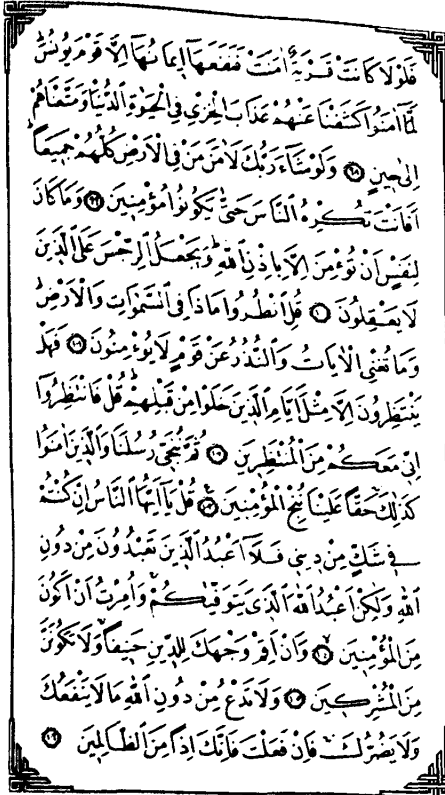 فَلَوْلَا كَانَتْ قَرْيَةٌ اٰمَنَتْ فَنَفَعَهَٓا ا۪يمَانُهَٓا اِلَّا قَوْمَ يُونُسَۜ
لَمَّٓا اٰمَنُوا كَشَفْنَا عَنْهُمْ عَذَابَ الْخِزْيِ فِي الْحَيٰوةِ الدُّنْيَا وَمَتَّعْنَاهُمْ
اِلٰى ح۪ينٍ ﴿٩٨﴾ وَلَوْ شَٓاءَ رَبُّكَ لَاٰمَنَ مَنْ فِي الْاَرْضِ كُلُّهُمْ جَم۪يعاًۜ
اَفَاَنْتَ تُكْرِهُ النَّاسَ حَتّٰى يَكُونُوا مُؤْمِن۪ينَ ﴿٩٩﴾ وَمَا كَانَ
لِنَفْسٍ اَنْ تُؤْمِنَ اِلَّا بِاِذْنِ اللّٰهِۜ وَيَجْعَلُ الرِّجْسَ عَلَى الَّذ۪ينَ
لَا يَعْقِلُونَ ﴿١٠٠﴾ قُلِ انْظُرُوا مَاذَا فِي السَّمٰوَاتِ وَالْاَرْضِۜ
وَمَا تُغْنِي الْاٰيَاتُ وَالنُّذُرُ عَنْ قَوْمٍ لَا يُؤْمِنُونَ ﴿١٠١﴾ فَهَلْ
يَنْتَظِرُونَ اِلَّا مِثْلَ اَيَّامِ الَّذ۪ينَ خَلَوْا مِنْ قَبْلِهِمْۜ قُلْ فَانْتَظِرُٓوا
اِنّ۪ي مَعَكُمْ مِنَ الْمُنْتَظِر۪ينَ ﴿١٠٢﴾ ثُمَّ نُنَجّ۪ي رُسُلَنَا وَالَّذ۪ينَ اٰمَنُوا
كَذٰلِكَۚ حَقاًّ عَلَيْنَا نُنْجِ الْمُؤْمِن۪ينَ۟ ﴿١٠٣﴾ قُلْ يَٓا اَيُّهَا النَّاسُ اِنْ كُنْتُمْ
ف۪ي شَكٍّ مِنْ د۪ين۪ي فَلَٓا اَعْبُدُ الَّذ۪ينَ تَعْبُدُونَ مِنْ دُونِ
اللّٰهِ وَلٰكِنْ اَعْبُدُ اللّٰهَ الَّذ۪ي يَتَوَفّٰيكُمْۚ وَاُمِرْتُ اَنْ اَكُونَ
مِنَ الْمُؤْمِن۪ينَۙ ﴿١٠٤﴾ وَاَنْ اَقِمْ وَجْهَكَ لِلدّ۪ينِ حَن۪يفاًۚ وَلَا تَكُونَنَّ
مِنَ الْمُشْرِك۪ينَ ﴿١٠٥﴾ وَلَا تَدْعُ مِنْ دُونِ اللّٰهِ مَا لَا يَنْفَعُكَ
وَلَا يَضُرُّكَۚ فَاِنْ فَعَلْتَ فَاِنَّكَ اِذاً مِنَ الظَّالِم۪ينَ ﴿١٠٦﴾